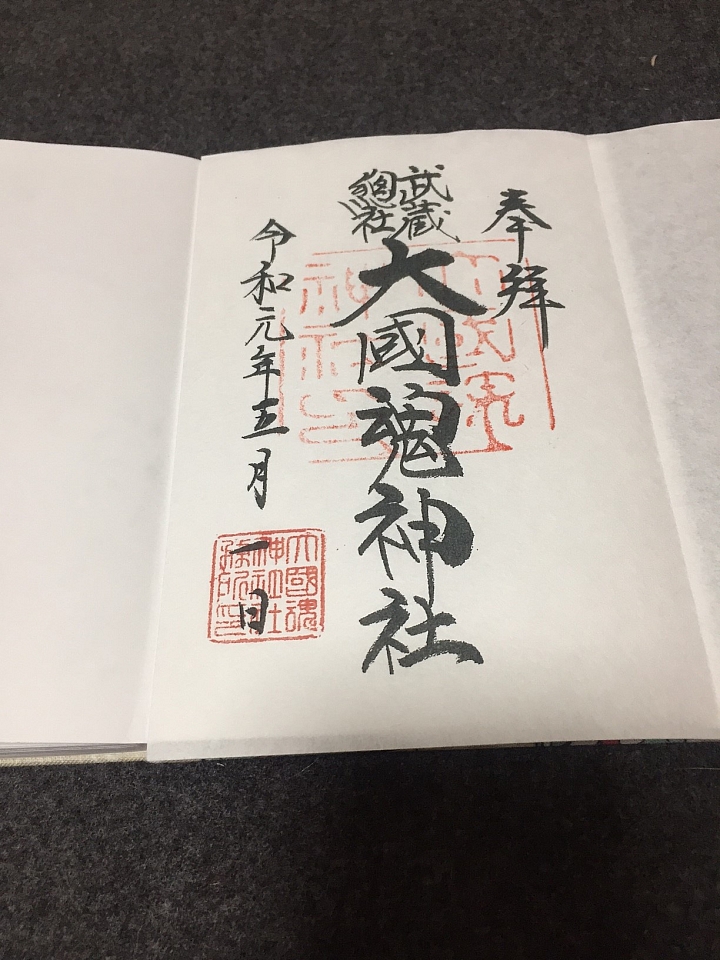 奉拝
武蔵
總社
大國魂神社
令和元年五月一日
大國魂
神社社
務所印